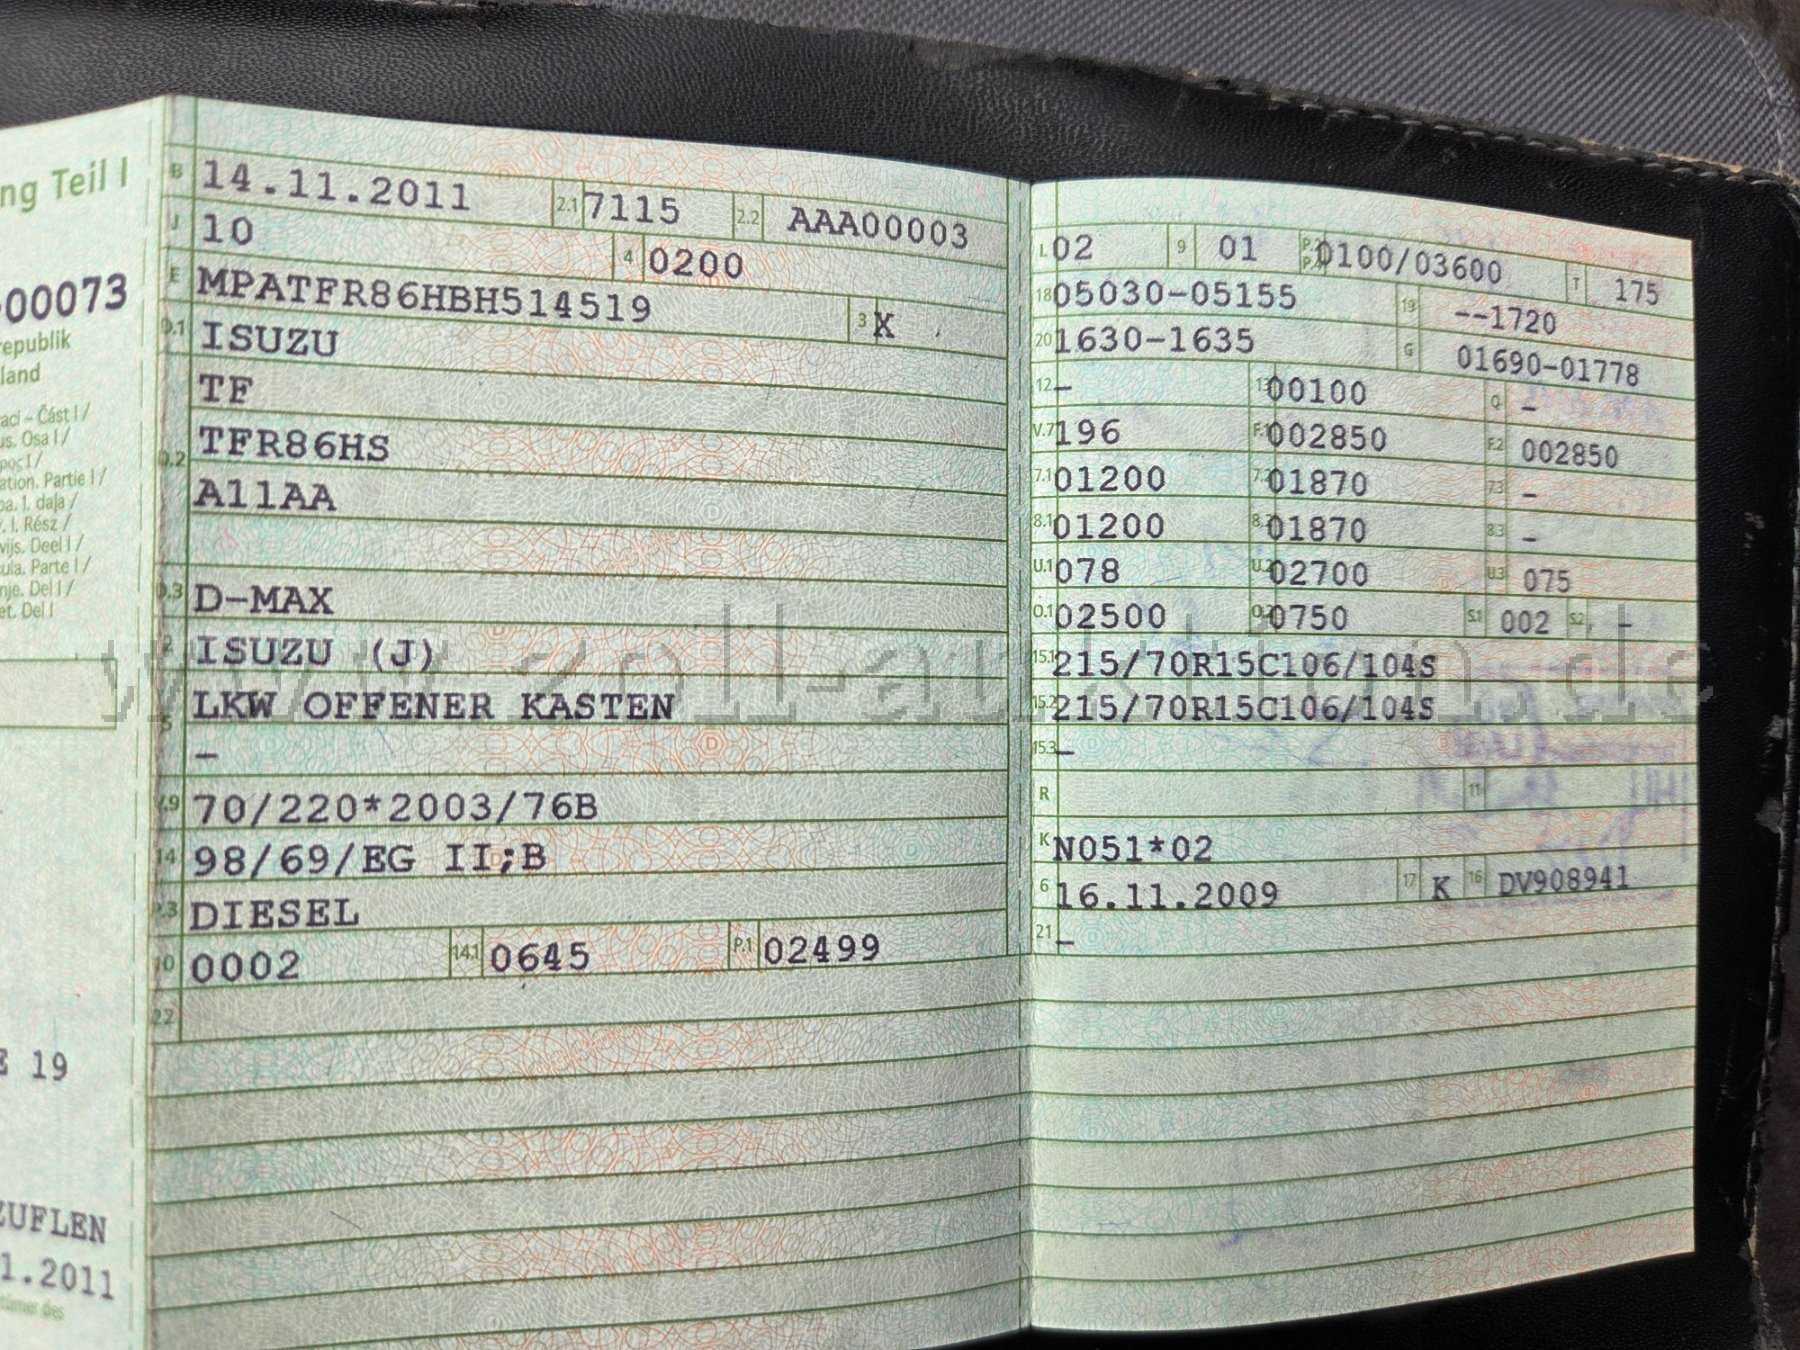 ng Teil I
00073
epublik
land
raci - Část I /
us. Osa I /
ation. Partie I /
ba. I. daļa /
. I. Rész /
wijs. Deel I /
ula. Parte I /
nje. Del I /
et. Del I
E 19
ZUFLEN
1.2011
B 14.11.2011 2.1 7115 2.2 AAA00003
J 10 4 0200
E MPATFR86HBH514519 3 X
D.1 ISUZU
TF
D.2 TFR86HS
A11AA
D.3 D-MAX
2 ISUZU (J)
5 LKW OFFENER KASTEN
-
V.9 70/220*2003/76B
14 98/69/EG II;B
P.3 DIESEL
10 0002 14.1 0645 P.1 02499
22
L 02 9 01 P.2 P.4 0100/03600 T 175
18 05030-05155 19 --1720
20 1630-1635 G 01690-01778
12 - 13 00100 Q -
V.7 196 F.1 002850 F.2 002850
7.1 01200 7.2 01870 7.3 -
8.1 01200 8.2 01870 8.3 -
U.1 078 U.2 02700 U.3 075
O.1 02500 O.2 0750 S.1 002 S.2 -
15.1 215/70R15C106/104S
15.2 215/70R15C106/104S
15.3 -
R 11
K N051*02
6 16.11.2009 17 K 16 DV908941
21 -
www.zoll-auktion.de